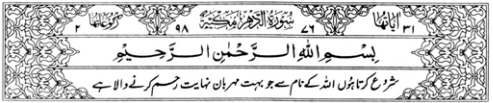 اٰیَاتُهَا ٣١ ٧٦ سُوْرَةُ الدَّهْرِ مَكِّيَّةٌ ٩٨ رُكُوْعَاتُهَا ٢
بِسْمِ اللهِ الرَّحْمٰنِ الرَّحِيْمِ
شروع کرتا ہوں اللہ کے نام سے جو بہت مہربان نہایت رحم کرنے والا ہے